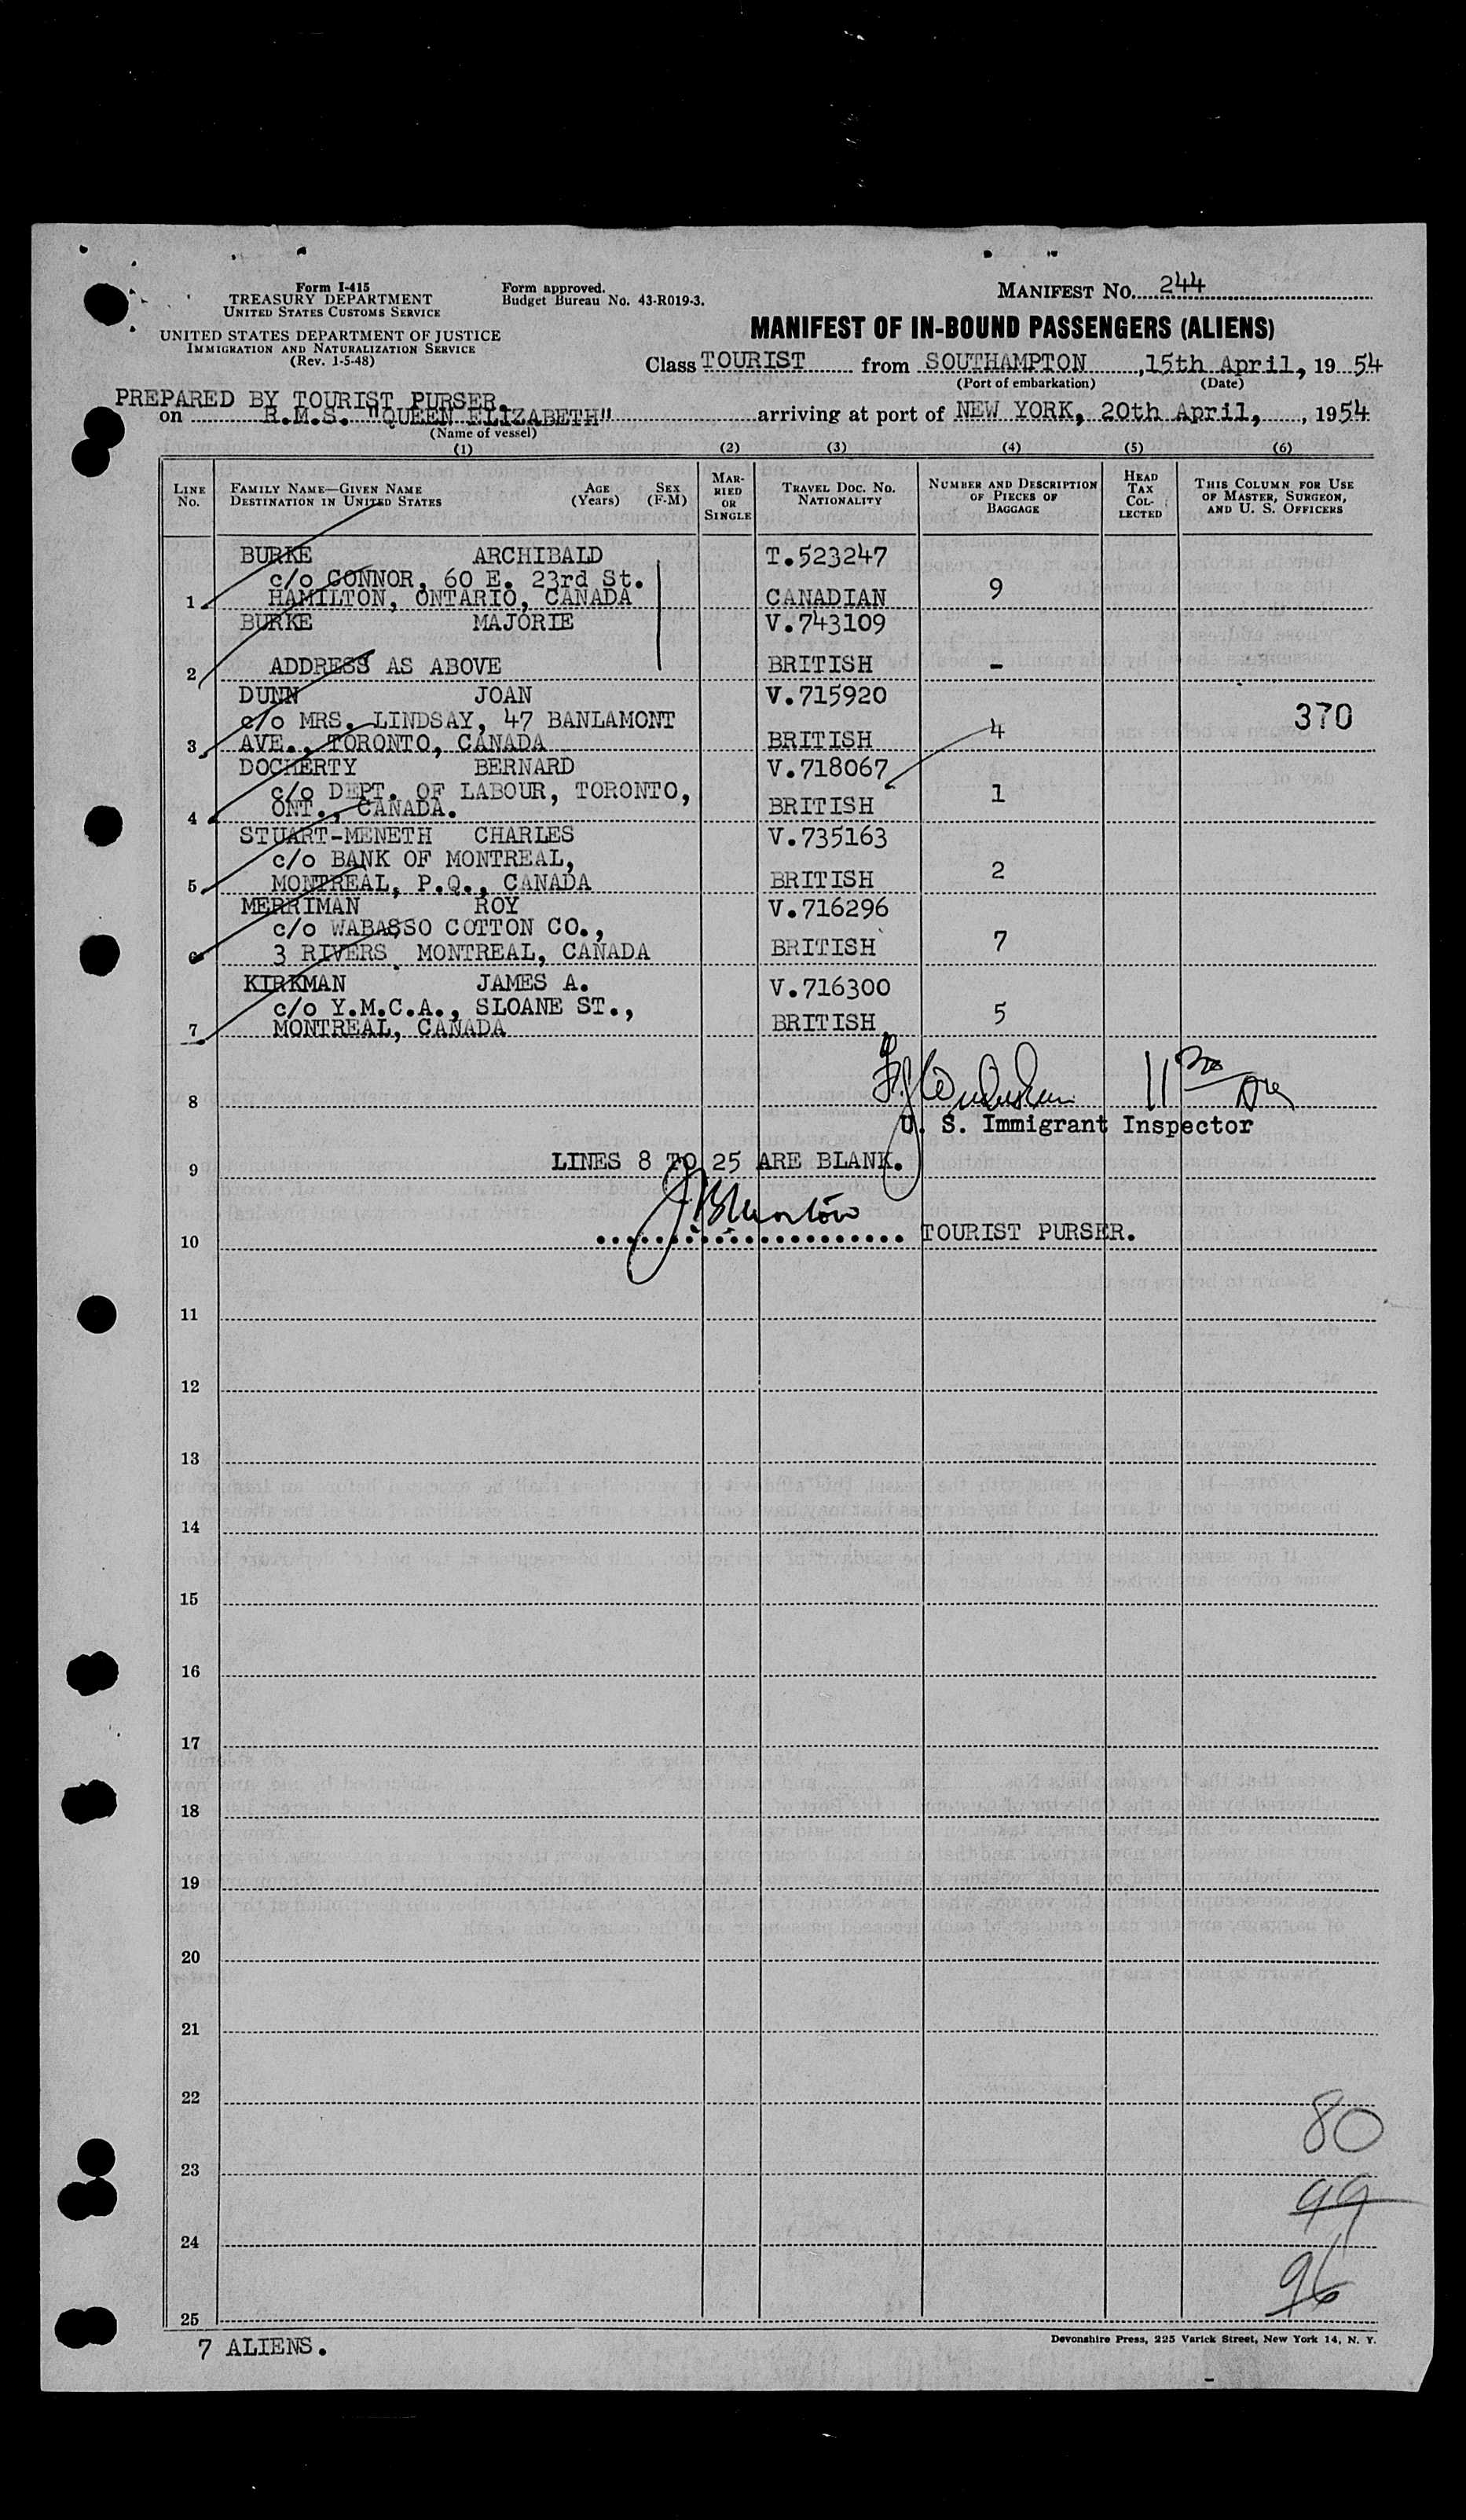 Form I-415
TREASURY DEPARTMENT
UNITED STATES CUSTOMS SERVICE
UNITED STATES DEPARTMENT OF JUSTICE
IMMIGRATION AND NATURALIZATION SERVICE
(Rev. 1-5-48)
Form approved.
Budget Bureau No. 43-R019-3.
MANIFEST NO. 244
MANIFEST OF IN-BOUND PASSENGERS (ALIENS)
Class TOURIST from SOUTHAMPTON, 15th April, 19 54
(Port of embarkation) (Date)
PREPARED BY TOURIST PURSER.
on R.M.S. "QUEEN ELIZABETH" arriving at port of NEW YORK, 20th April, , 1954
(Name of vessel)
(1) (2) (3) (4) (5) (6)
LINE NO. FAMILY NAME—GIVEN NAME DESTINATION IN UNITED STATES AGE (Years) SEX (F-M) MARRIED OR SINGLE TRAVEL DOC. NO. NATIONALITY NUMBER AND DESCRIPTION OF PIECES OF BAGGAGE HEAD TAX COLLECTED THIS COLUMN FOR USE OF MASTER, SURGEON, AND U. S. OFFICERS
BURKE ARCHIBALD T.523247
c/o CONNOR, 60 E. 23rd St. 9
1 HAMILTON, ONTARIO, CANADA CANADIAN
BURKE MAJORIE V.743109
2 ADDRESS AS ABOVE BRITISH -
DUNN JOAN V.715920
c/o MRS. LINDSAY, 47 BANLAMONT 4 370
3 AVE., TORONTO, CANADA BRITISH
DOCHERTY BERNARD V.718067
c/o DEPT. OF LABOUR, TORONTO, 1
4 ONT., CANADA. BRITISH
STUART-MENETH CHARLES V.735163
c/o BANK OF MONTREAL, 2
5 MONTREAL, P.Q., CANADA BRITISH
MERRIMAN ROY V.716296
c/o WABASSO COTTON CO., 7
6 3 RIVERS MONTREAL, CANADA BRITISH
KIRKMAN JAMES A. V.716300
c/o Y.M.C.A., SLOANE ST., 5
7 MONTREAL, CANADA BRITISH
8
U. S. Immigrant Inspector
9 LINES 8 TO 25 ARE BLANK.
10 TOURIST PURSER.
11
12
13
14
15
16
17
18
19
20
21
22
80
23
99
24
96
25
7 ALIENS.
Devonshire Press, 225 Varick Street, New York 14, N. Y.